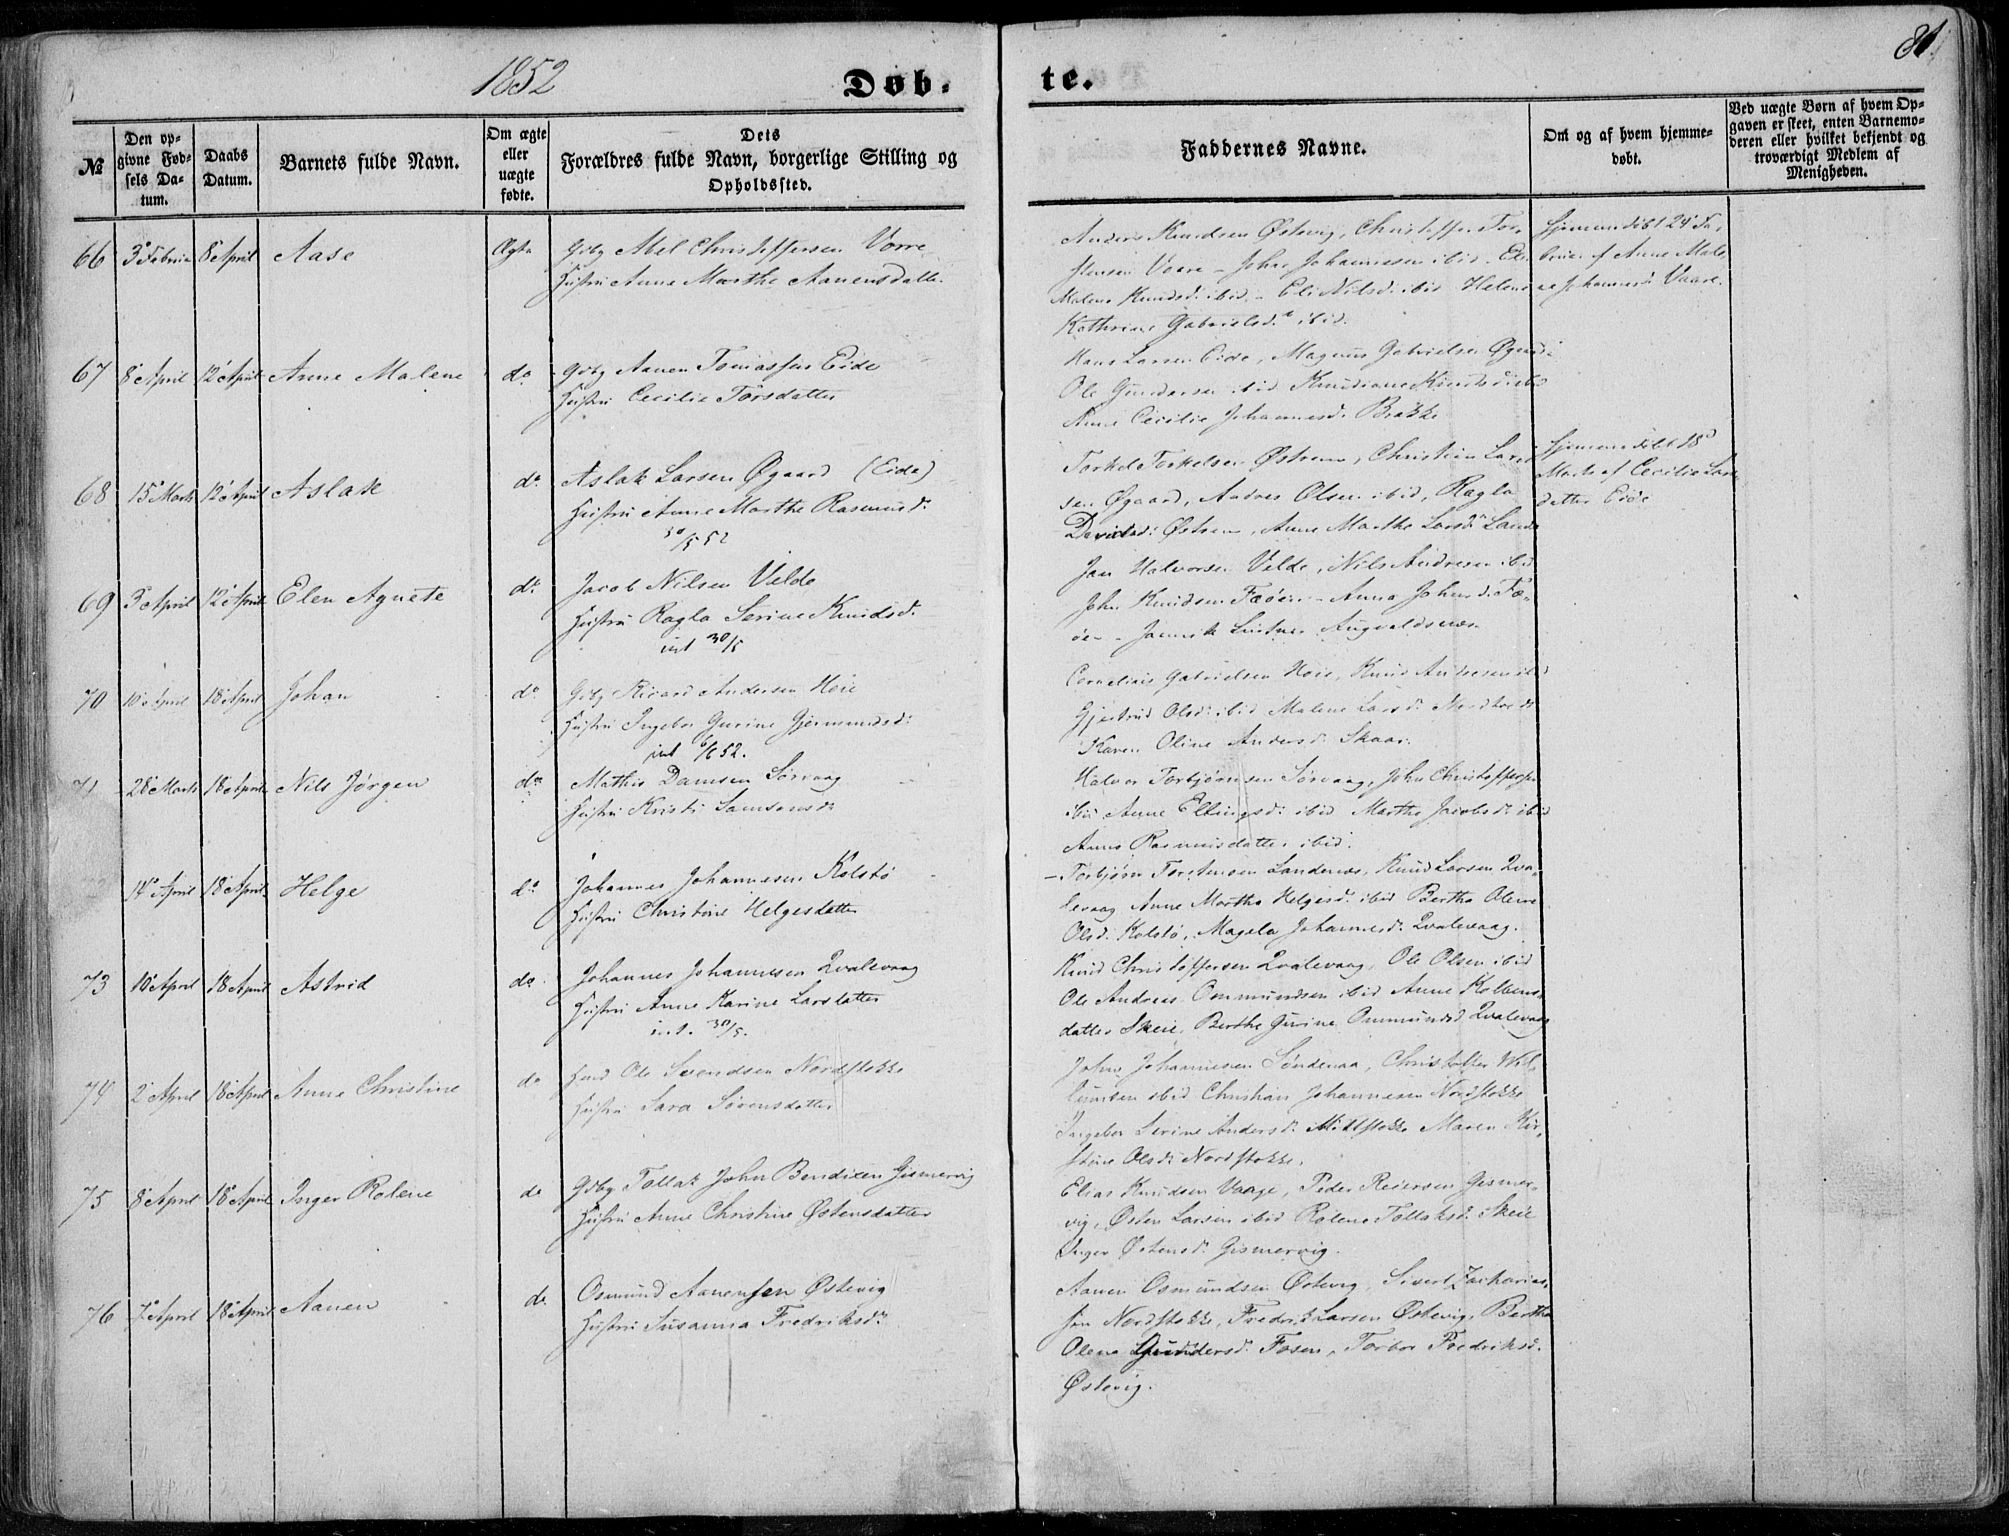 1852
Døb.
te.
81
№
Den op-
givne Fød-
sels Da-
tum.
Daabs
Datum.
Barnets fulde Navn.
Om ægte
eller
uægte
fødte.
Dets
Forældres fulde Navn, borgerlige Stilling og
Opholdssted.
Faddernes Navne.
Om og af hvem hjemme-
døbt.
Ved uægte Børn af hvem Op-
gaven er skeet, enten Barnemo-
deren eller hvilket bekjendt og
troværdigt Medlem af
Menigheden.
66 3 Februa 8 April Aase Ægte Gdbg Abel Christoffersen Vorre
Hustru Anne Marthe Aanensdatte.
Anders Knudsen Østevig, Christoffer Tor-
stensen Vaare - Johan Johannesen ibid - Elen
Malene Knudsd. ibid. - Eli Nilsd. ibid Helene
Kathrine Gabrielsd. ibid.
Hjemmedøbt 24 Fe-
bruar af Anne Male-
ne Johannesd. Vaare.
67 8 April 12 April Anne Malene do Gdbg Aanen Tomassen Eide
Hustru Cecilie Torsdatter
Hans Larsen Eide, Magnus Gabrielsen Øgaard
Ole Gundersen ibid Knudiane Knudsd. ibid
Anne Cecilie Johannesd. Brække
68 15 Marts 12 April Aslak do Aslak Larsen Øgaard (Eide)
Hustru Anne Marthe Rasmusd.
30/5 52
Torkel Torkelsen Østrem, Christian Lar-
sen Øgaard, Andres Olsen ibid, Ragla
Davidsd. Østrem, Anne Marthe Larsd. Lande
Hjemmedøbt 18
Marts af Cecilie Lars-
datter Eide
69 3 April 12 April Elen Agnete do Jacob Nilsen Velde
Hustru Ragla Serine Knudsd.
int 30/5
Jan Halvorsen Velde, Nils Andresen ibid
John Knudsen Fæøen - Anna Johnsd. Fæ-
øen - Augvaldsnæs
70 10 April 18 April Johan do Gdbg Rivard Andersen Høie
Hustru Ingebor Gurine Gjermundsd.
int 6/6 52.
Cornelius Gabrielsen Høie, Knud Andresen ibid
Gjertrud Olsd. ibid Malene Larsd.
Karen Oline Andersd. Skaar.
71 28 Marts 18 April Nils Jørgen do Mathis Danisen Sørvaag
Hustru Kristi Samsonsd.
Halvor Torbjørnsen Sørvaag, John Christoffersen
ibid Anne Ellingsd. ibid Marthe Jacobsd. ibid
Anne Rasmusdatter ibid.
14 April 18 April Helge do Johannes Johannesen Kolstø
Hustru Christine Helgesdatter
Torbjørn Torstensen Landenes, Knud Larsen Qva-
levaag Anne Marthe Helgesd. ibid Berthe Olene
Olsd. Kolstø, Magela Johannesd. Qvalevaag.
73 10 April 18 April Astrid do Johannes Johannesen Qvalevaag
Hustru Anne Karine Larsdatter
int. 30/5.
Knud Christoffersen Qvalevaag, Ole Olsen ibid
Ole Andreas Ommundsen ibid Anne Kolbens-
datter Skeie, Berthe Gurine Ommundsd Qvalevaag
74 2 April 18 April Anne Christine do Ole Svendsen Nordstokke
Hustru Sara Sørensdatter
John Johannesen Søndenaa, Christoffer Wil-
lumsen ibid Christian Johannesen Nordstokke
Ingebor Serine Andersd. Midtstokke Maren Kir-
stine Olsd. Nordstokke.
75 8 April 18 April Inger Rolene do Gdbg Tollak John Bendixen Gismervig
Hustru Anne Christine Østensdatter
Elias Knudsen Vaage, Peder Reiersen Gismer-
vig, Østen Larsen ibid Rolene Tollaksd. Skeie
Inger Østensd. Gismervig.
76 7 April 18 April Aanen do Osmund Aanensen Østevig
Hustru Susanna Fredriksd.
Aanen Osmundsen Østevig, Sivert Zacharias-
sen Nordstokke, Fredrik Larsen Østevig, Berthe
Olene Gundersd. Fosen, Torbor Fredriksd.
Østevig.